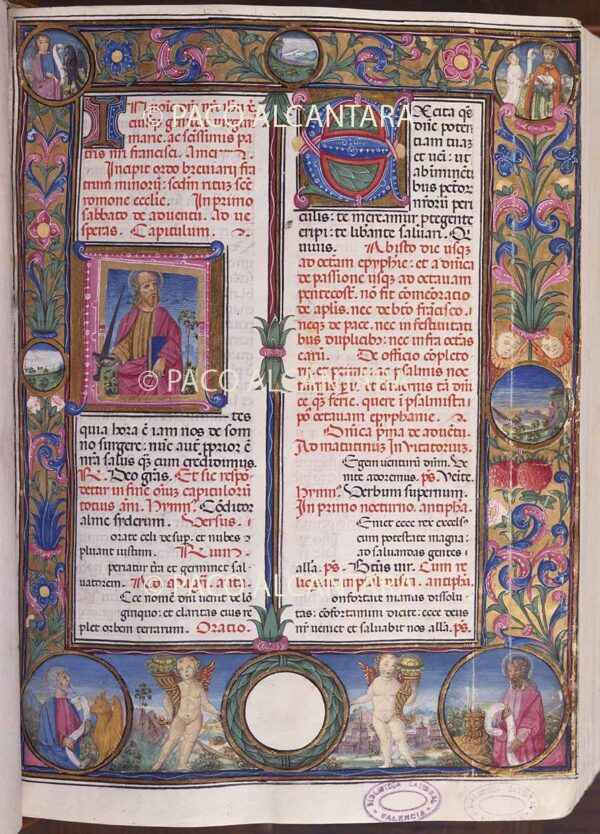 eiusq; virginis
marie. ac scissimi pa
tris nri francisci. Amen
Incipit ordo breuiarii fra
trum minorū: scdm ritus scē
romane ecclie. In primo
sabbato de aduentu. Ad ve
speras. Capitulum.
F
tes
quia hora ē iam nos de som
no surgere: nūc aut prior ē
nr̄a salus qȝ cum credidimus.
R. Deo gras. Et sic respo
detur in fine oiuȝ capitulorū
totius ani. Hymn. Cōditor
alme syderum. Versus.
orate celi desup. et nubes
pluant iustum.
periatur tr̄a et germinet sal
uatorem. Ad Magñ. anta.
Ecce nomē dñi venit de lō
ginquo: et claritas eius re
plet orbem terrarum. Oratio.
Excita qs
dñe poten
tiam tuaȝ
et veni: ut
ab iminēti
bus pctor
nrorū peri
culis: te mereamur ptegente
eripi: te libante saluari. Q
viuis.
Ab isto die usqȝ
ad octauam epyphīe: et a dñica
de passione usqȝ ad octauam
pentecost. non fit cōmemoratio
de aplis. nec de btō francisco.
neqȝ de pace. nec in festiuitati
bus duplicibȝ: nec infra octas
earū. De officio completo
rii et prime: ac psalmis noctur
nis
psalmista
post octauam epyphanie.
Dñica pma de aduētu.
Ad matutinum Inuitatorium.
Regem venturū dñm. Ve
nite adoremus. ps. Venite.
Hymn. Verbum supernum.
In primo nocturno. antipha.
Veniet ecce rex excels
cum potestate magna:
ad saluandas gentes
alla. ps. Btūs vir. Cum re
liquis antipha.
Confortate manus dissolu
tas: cōfortamini dicite: ecce deus
nr̄ veniet et saluabit nos alla. ps.
© PACO ALCANTARA
© PACO ALCANTARA
© PACO ALCANTARA
BIBLIOTECA CATEDRAL
VALENCIA